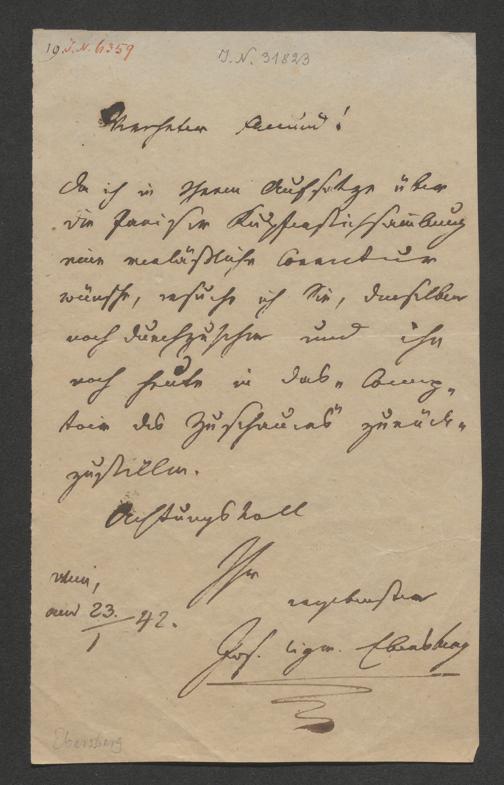 I.N. 6359
I.N. 31823
Verehrter Freund!
Da ich in Ihrem Aufsatze über
die Pariser Kupferstichsammlung
eine verläßliche Correctur
wünsche, ersuche ich Sie, denselben
noch durchzusehen und ihn
noch heute in das „Comp-
toir des Zuschauers" zurück-
zustellen.
Achtungsvoll
Ihr
Wien,
ergebenster
am 23./1 42.
Jos. Sigm. Ebersberg
Ebersberg